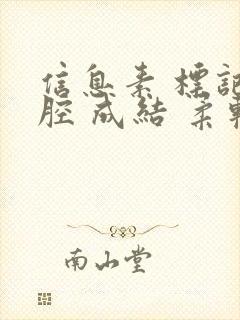 信息素 標記
腔 成結 柔軟
南山堂